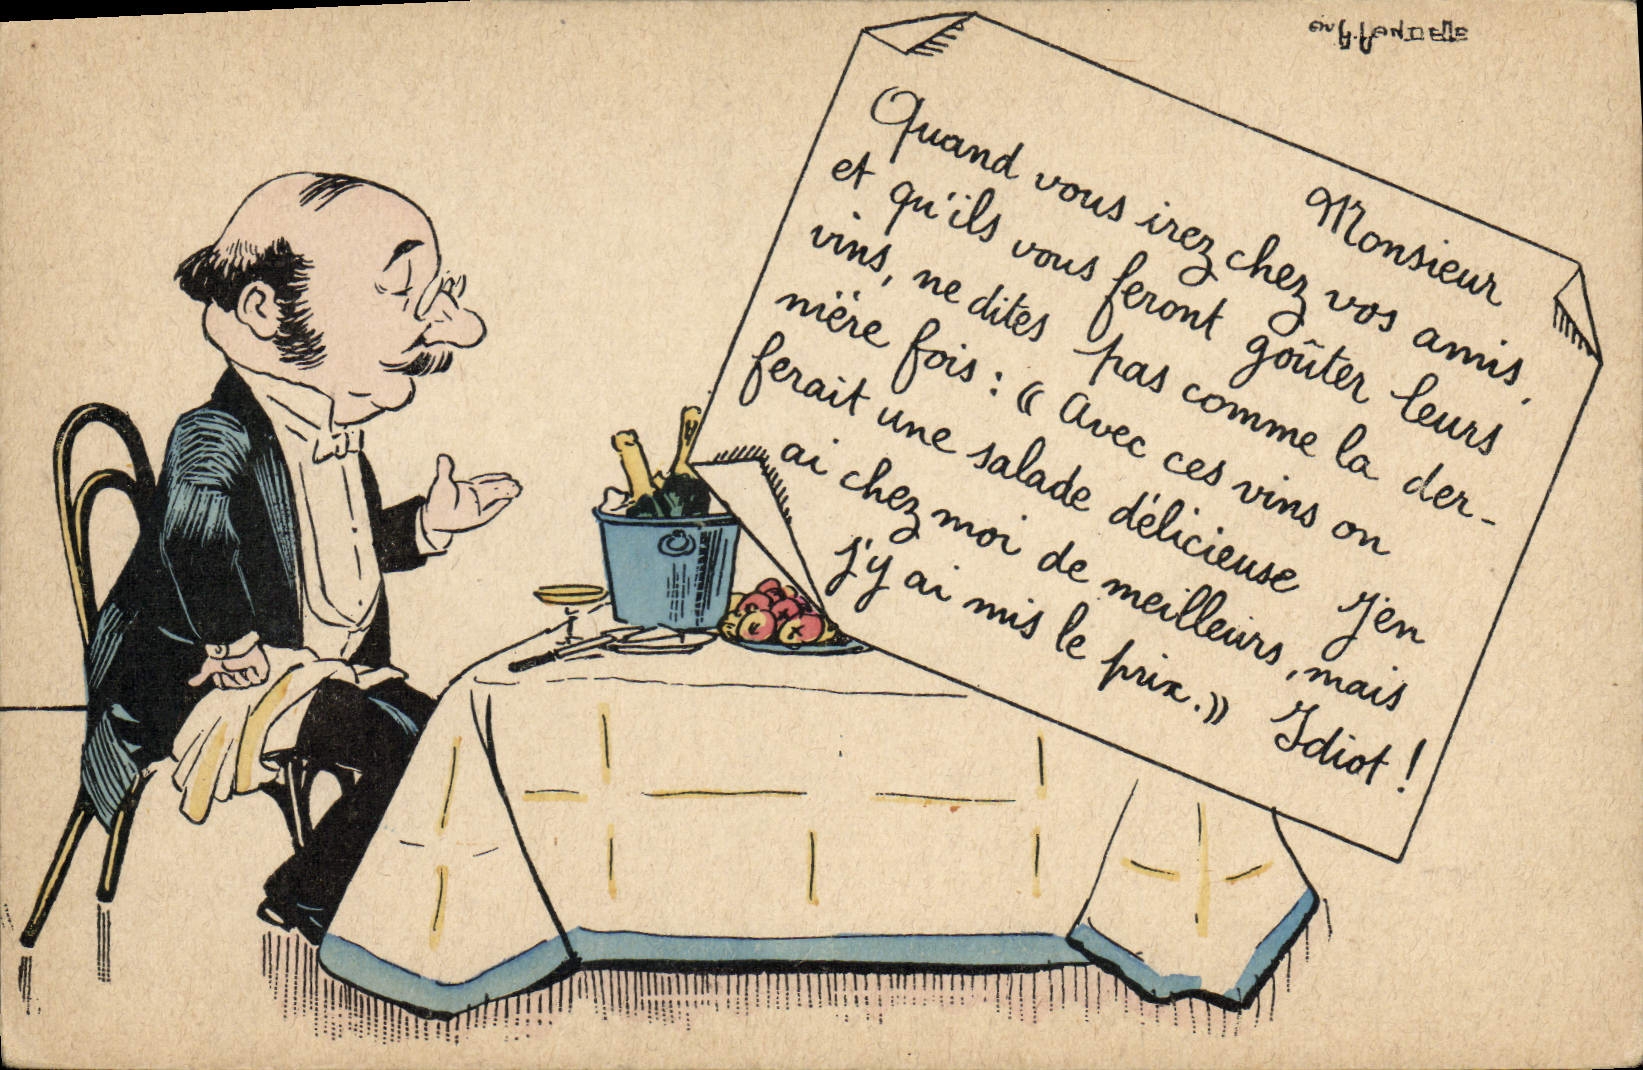 Monsieur
Quand vous irez chez vos amis,
et qu'ils vous feront goûter leurs
vins, ne dites pas comme la der-
nière fois : « Avec ces vins on
ferait une salade délicieuse j'en
ai chez moi de meilleurs, mais
j'y ai mis le prix. » Idiot !